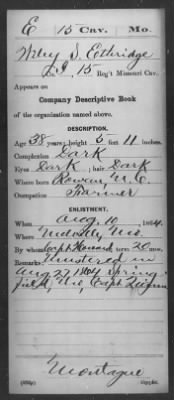 E 15 Cav. Mo.
Wiley S. Ethridge
Co. G, 15 Reg't Missouri Cav.
Appears on
Company Descriptive Book
of the organization named above.
DESCRIPTION.
Age 38 years; height 5 feet 11 inches.
Complexion Dark
Eyes Dark; hair Dark
Where born Rowan, N.C.
Occupation Farmer
ENLISTMENT.
When Aug. 10, 1864.
Where Mo.
By whom Capt Howard term 20 mos.
Remarks: Mustered in
Aug 27 1864 Spring-
field, Mo, Capt
Montague
Copyist.